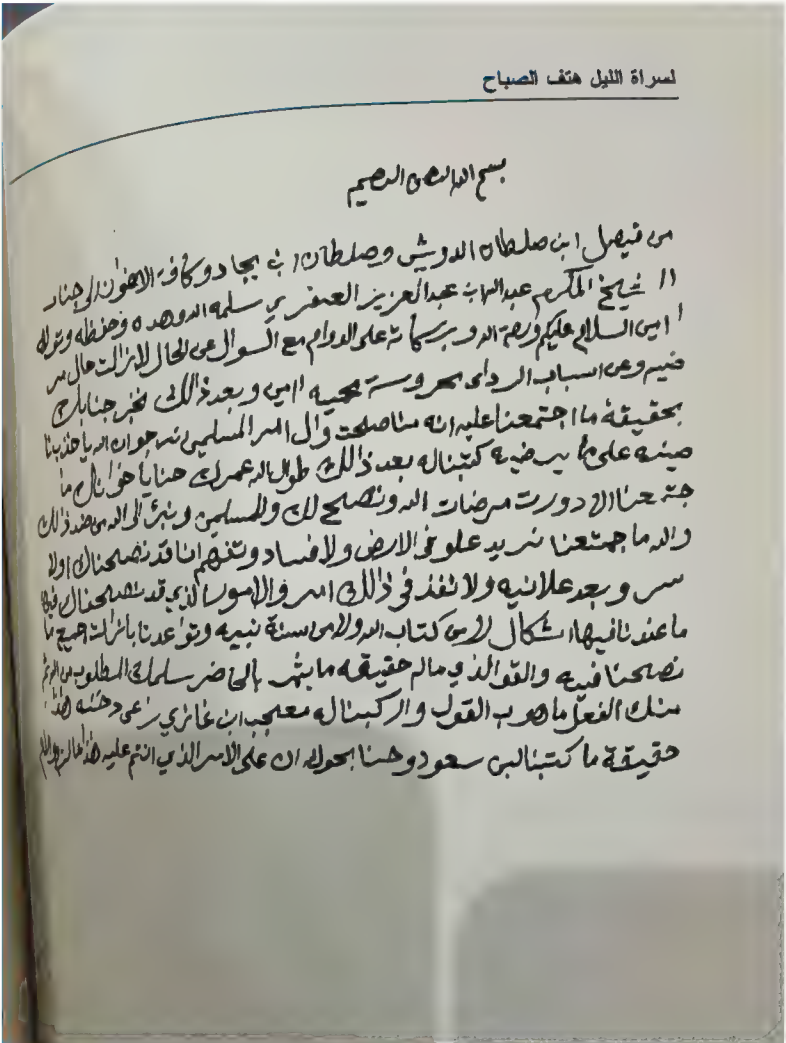 لسراة الليل هتف الصباح
بسم الله الرحمن الرحيم
من فيصل ابن صلطان الدويش وصلطان ابن بجاد وكافة الاخوان الى جناب
الشيخ المكرم عبدالله بن عبدالعزيز العنقري سلمه الله وهداه وحفظه وتولاه
امين السلام عليكم ورحمة الله وبركاته على الدوام مع السوال عن الحال لازالت حال من
فيه وعن اسباب الردى محروسة محميه اامين وبعد ذالك نخبر جنابك
بحقيقة ما اجتمعنا عليه انه مناصحت وال امر المسلمين نرجو ان الله ياخذ بنا
صيته على ما يرضيه كتبناله بعد ذالك طوال الله عمرك حنايا خوانك ما
جتمعنا الا دورت مرضات الله ونصح لك وللمسلمين ونبرئ الى الله من ضد ذلك
والله ماجمتعنا نريد علو في الارض ولا فساد وتفهم انا قد نصحناك اولا
سر وبعد علانيه ولا نفذ في ذالك امر والامور الذي قد نصحناك فيها
ما عندنا فيها اشكال لا من كتاب الله ولا من سنة نبيه وتواعدنا بازالت جميع ما
نصحنا فيه والقول الذي ماله حقيقه ما يثمر بالحاضر سلمك الله المطلوب من الله ثم
منك الفعل ما هوب القول واركبناله معجب ابن غازي راعى دخنه هذا
حقيقة ما كتبنا لبن سعود وحنا بحول الله ان على الامر الذي انتم عليه هذا مالزم والسلام